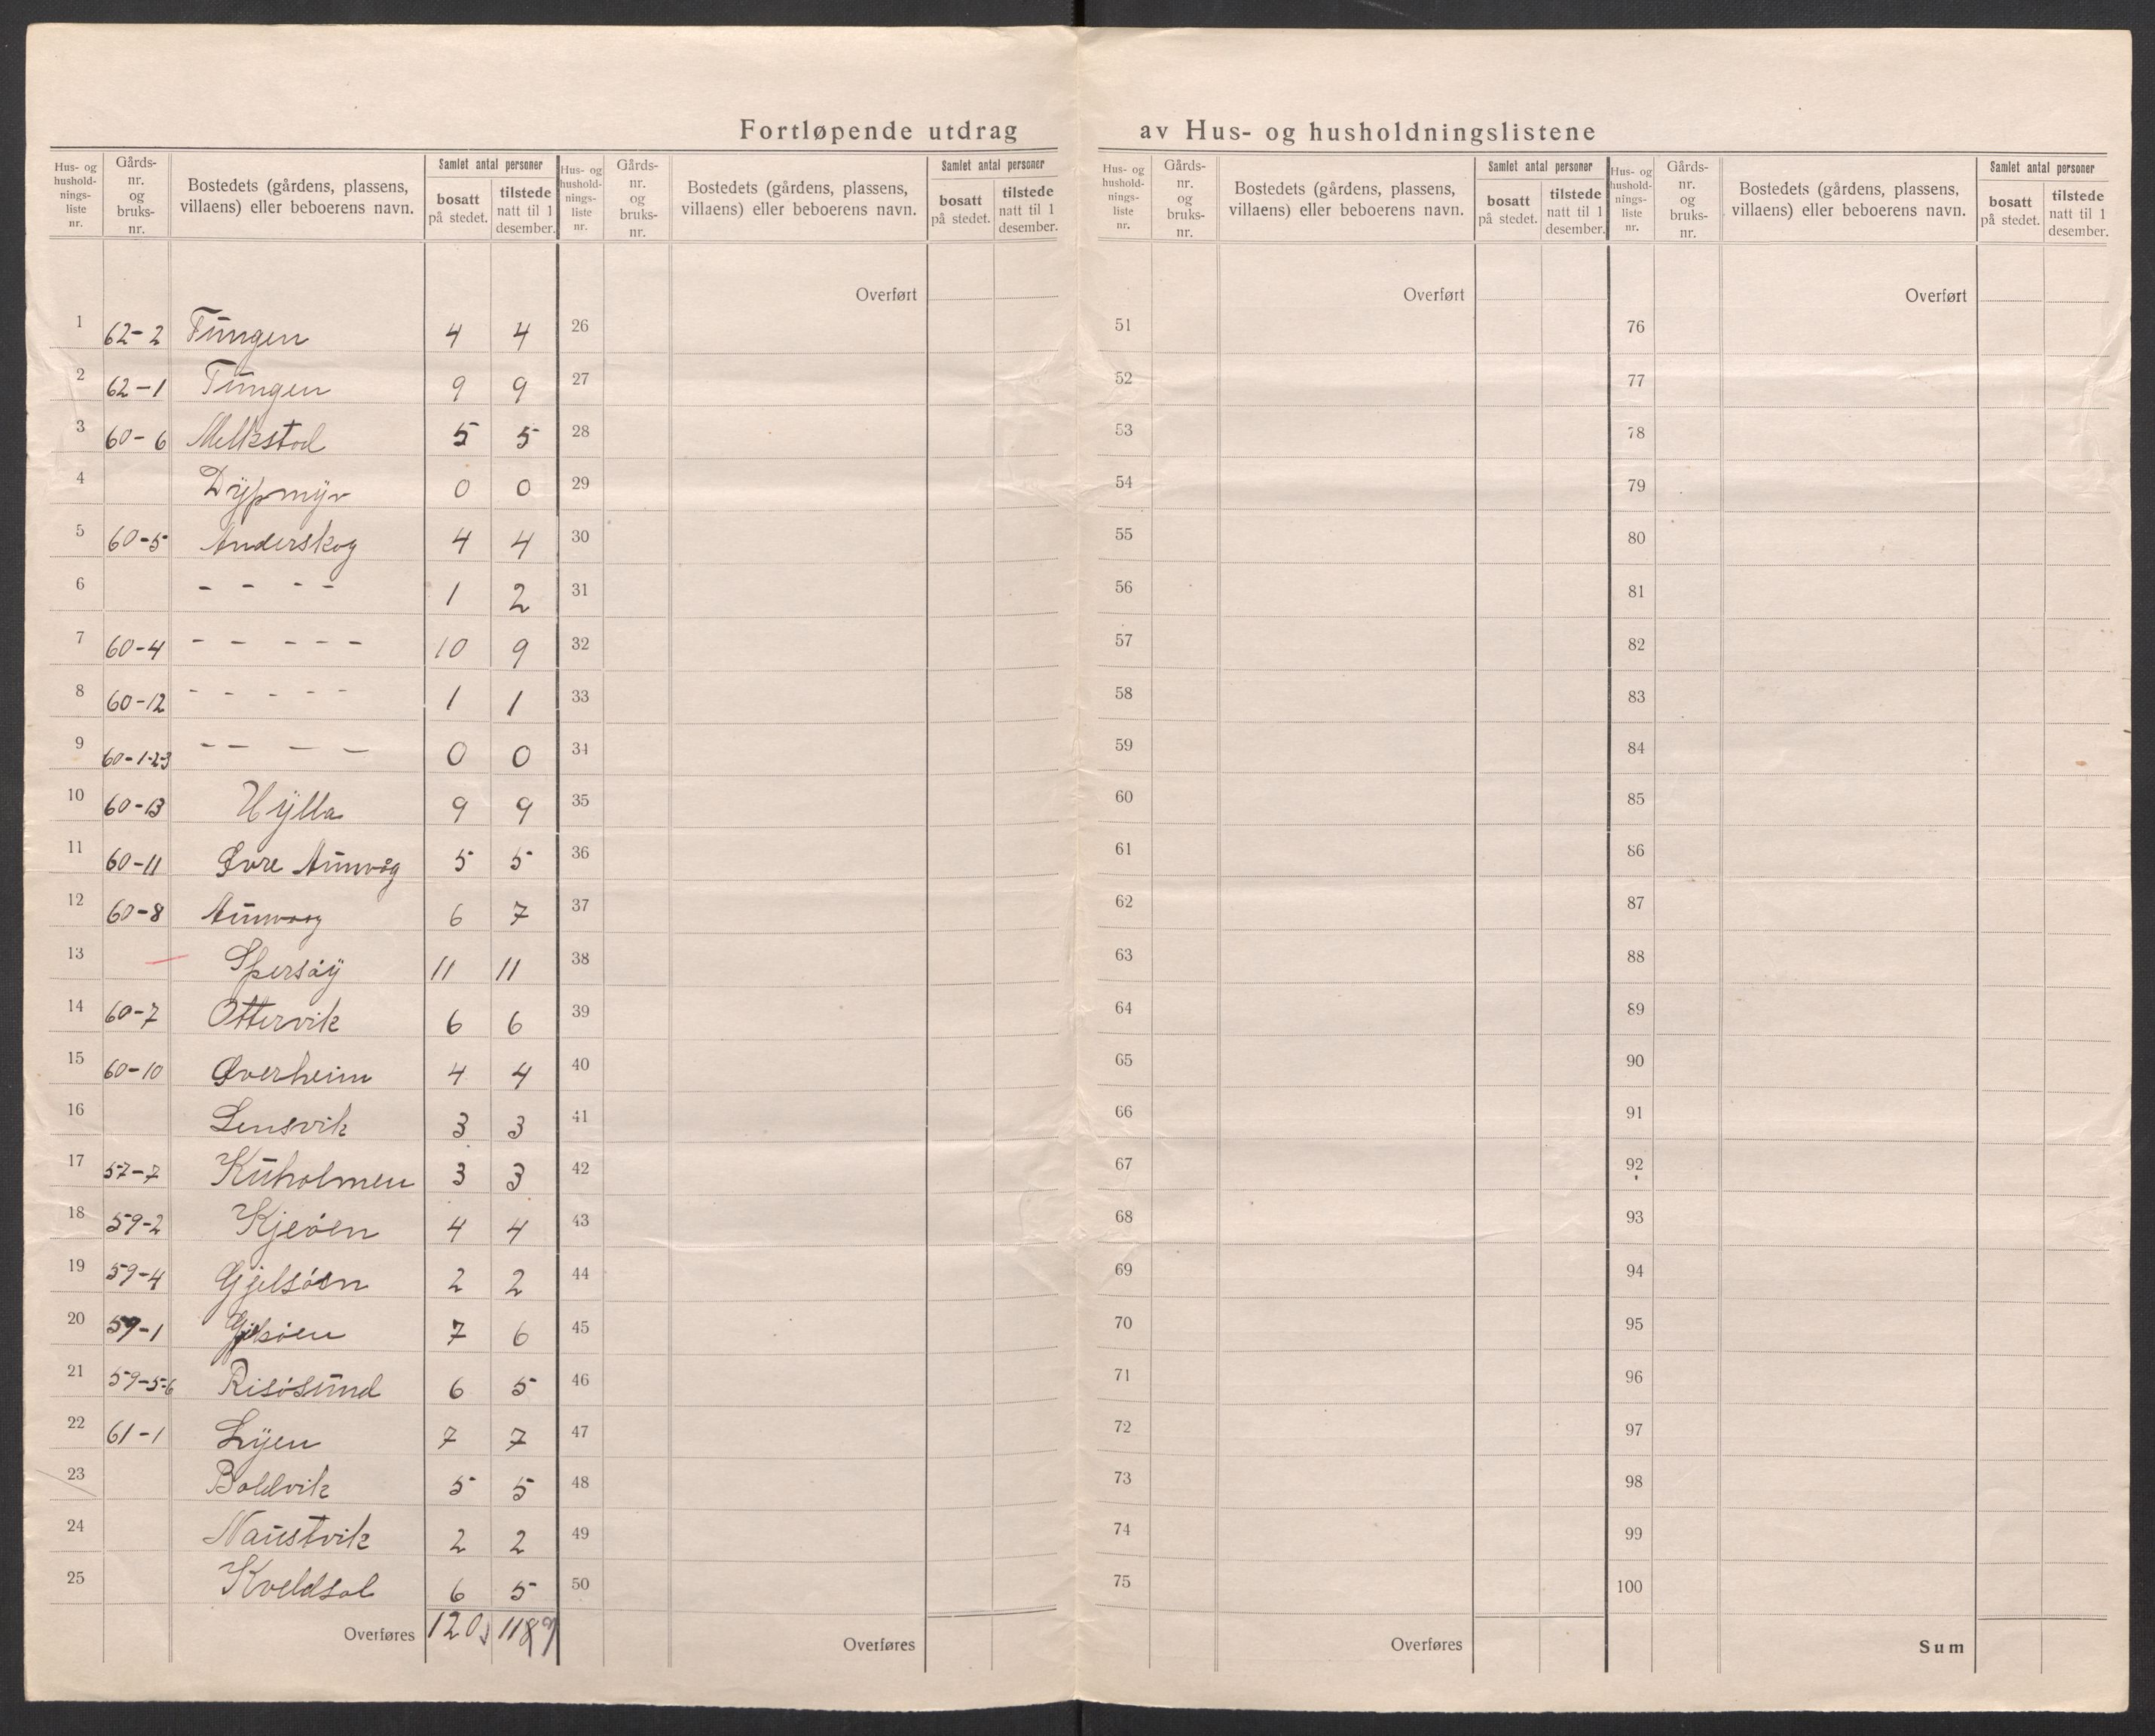 Fortløpende utdrag av Hus- og husholdningslistene
Hus- og hushold-nings-liste nr. | Gårds-nr. og bruks-nr. | Bostedets (gårdens, plassens, villaens) eller beboerens navn. | Samlet antal personer | bosatt på stedet. | tilstede natt til 1 desember.
Hus- og hushold-nings-liste nr. | Gårds-nr. og bruks-nr. | Bostedets (gårdens, plassens, villaens) eller beboerens navn. | Samlet antal personer | bosatt på stedet. | tilstede natt til 1 desember.
Hus- og hushold-nings-liste nr. | Gårds-nr. og bruks-nr. | Bostedets (gårdens, plassens, villaens) eller beboerens navn. | Samlet antal personer | bosatt på stedet. | tilstede natt til 1 desember.
Hus- og hushold-nings-liste nr. | Gårds-nr. og bruks-nr. | Bostedets (gårdens, plassens, villaens) eller beboerens navn. | Samlet antal personer | bosatt på stedet. | tilstede natt til 1 desember.
Overført Overført Overført
1 62-2 Tungen 4 4 26 51 76
2 62-1 Tungen 9 9 27 52 77
3 60-6 Melkstad 5 5 28 53 78
4 Dypmyr 0 0 29 54 79
5 60-5 Anderskog 4 4 30 55 80
6 - - - - 1 2 31 56 81
7 60-4 - - - - - 10 9 32 57 82
8 60-12 - - - - - 1 1 33 58 83
9 60-1-2-3 - - - - 0 0 34 59 84
10 60-13 Hylla 9 9 35 60 85
11 60-11 Øvre Aunvåg 5 5 36 61 86
12 60-8 Aunvaag 6 7 37 62 87
13 11 11 38 63 88
14 60-7 Ottervik 6 6 39 64 89
15 60-10 Øverheim 4 4 40 65 90
16 Lensvik 3 3 41 66 91
17 57-7 Kuholmen 3 3 42 67 92
18 59-2 Kjeøen 4 4 43 68 93
19 59-4 Gjelsøen 2 2 44 69 94
20 59-1 7 6 45 70 95
21 59-5-6 Risøsund 6 5 46 71 96
22 61-1 Lyen 7 7 47 72 97
23 Boldvik 5 5 48 73 98
24 Naustvik 2 2 49 74 99
25 Kveldsol 6 5 50 75 100
Overføres 120 1189 Overføres Overføres Sum